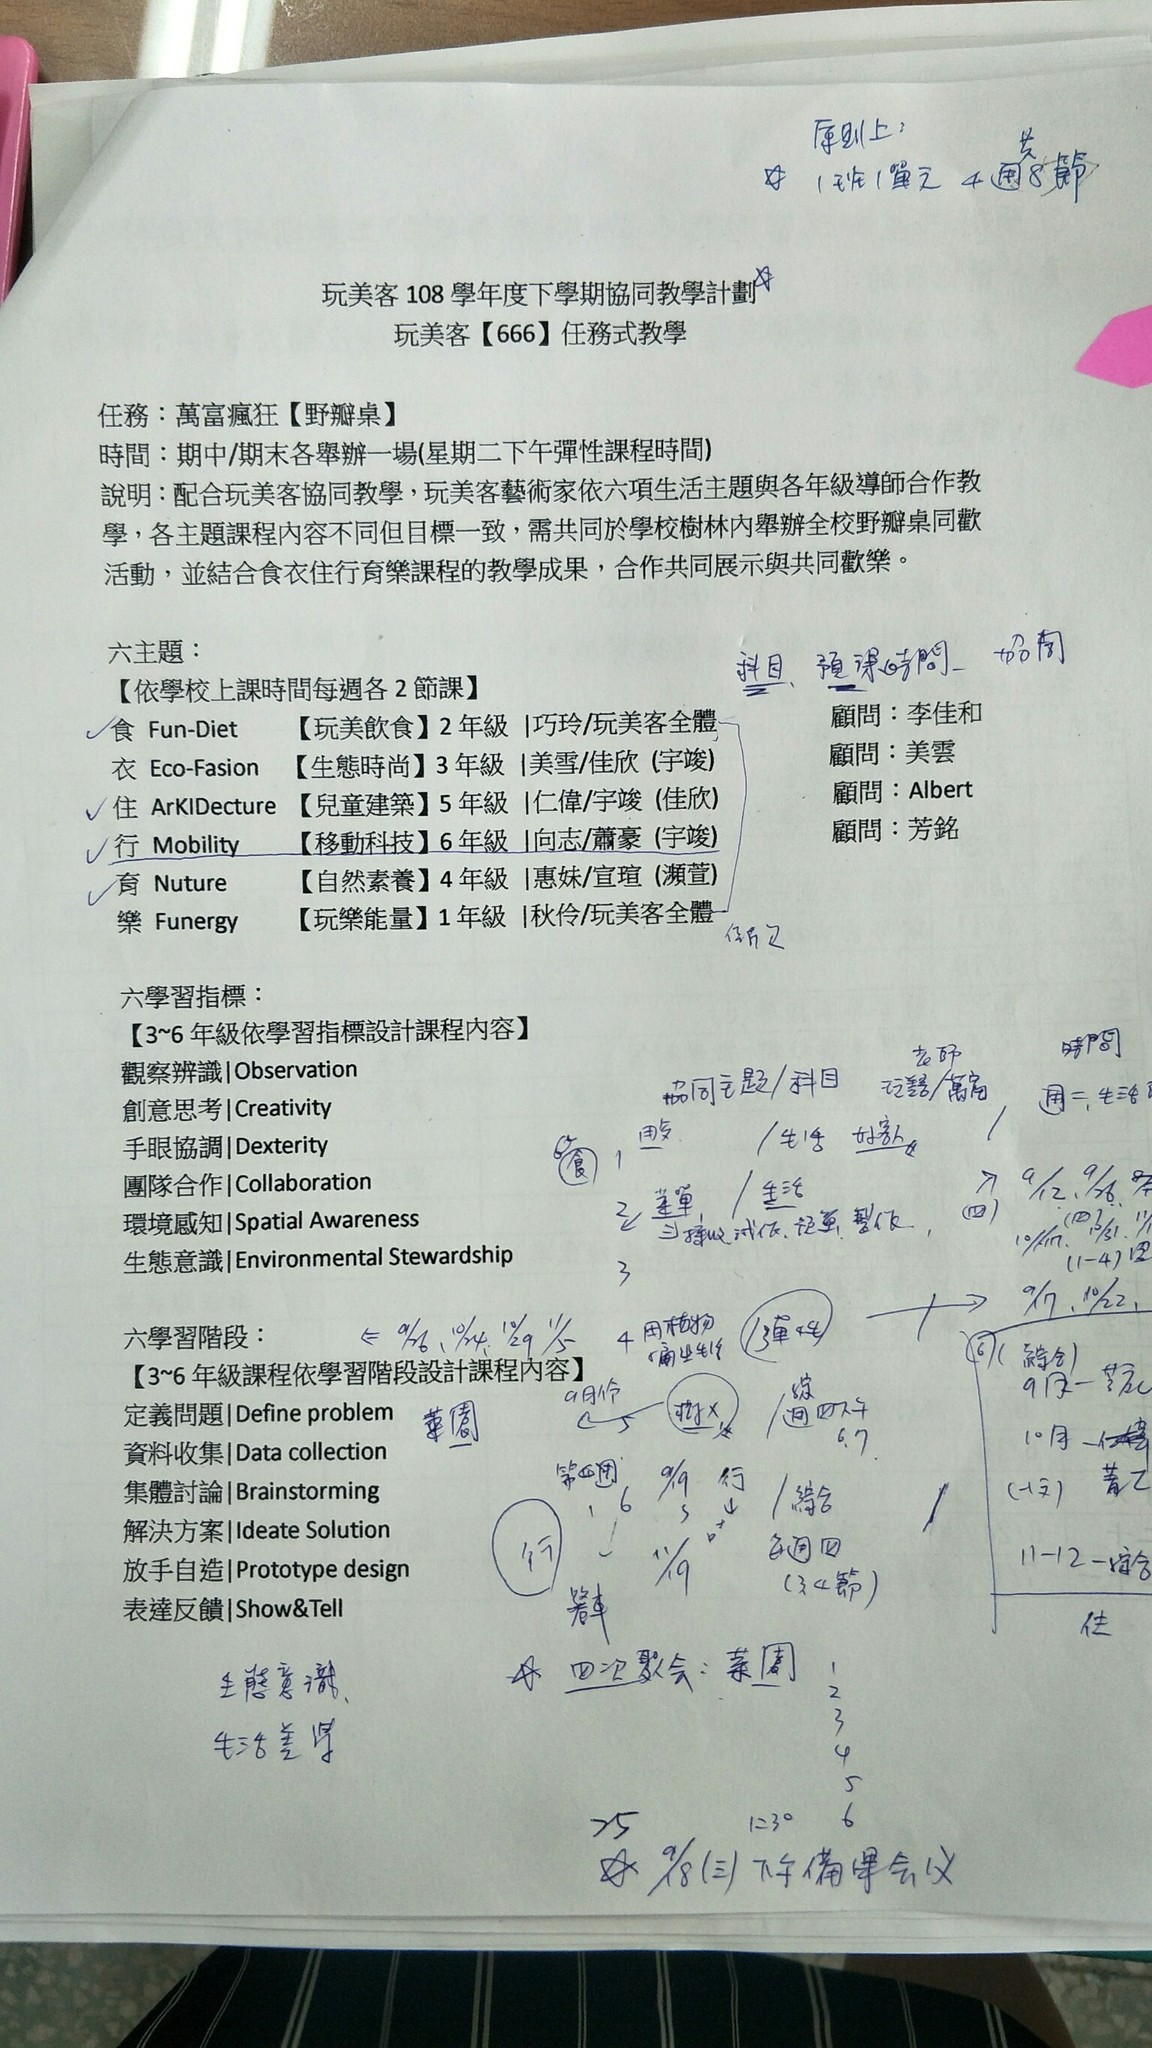 原則上：
☆ 1班1單元 4週共8節
玩美客 108 學年度下學期協同教學計劃☆
玩美客【666】任務式教學
任務：萬富瘋狂【野瓣桌】
時間：期中/期末各舉辦一場(星期二下午彈性課程時間)
說明：配合玩美客協同教學，玩美客藝術家依六項生活主題與各年級導師合作教
學，各主題課程內容不同但目標一致，需共同於學校樹林內舉辦全校野瓣桌同歡
活動，並結合食衣住行育樂課程的教學成果，合作共同展示與共同歡樂。
六主題：
科目、預課時間 協同
【依學校上課時間每週各 2 節課】
✓食 Fun-Diet 【玩美飲食】2 年級 |巧玲/玩美客全體 顧問：李佳和
衣 Eco-Fasion 【生態時尚】3 年級 |美雪/佳欣 (宇竣) 顧問：美雲
✓住 ArKIDecture 【兒童建築】5 年級 |仁偉/宇竣 (佳欣) 顧問：Albert
✓行 Mobility 【移動科技】6 年級 |向志/蕭豪 (宇竣) 顧問：芳銘
✓育 Nuture 【自然素養】4 年級 |惠妹/宣瑄 (瀕萱)
樂 Funergy 【玩樂能量】1 年級 |秋伶/玩美客全體
六學習指標：
【3~6 年級依學習指標設計課程內容】
觀察辨識|Observation
創意思考|Creativity
手眼協調|Dexterity
團隊合作|Collaboration
環境感知|Spatial Awareness
生態意識|Environmental Stewardship
協同主題/科目
老師
時間
食 1 /生活
2 菜單 /生活
(四) 9/12、9/26
(1-4)
3
9/17、10/22、
六學習階段：
9/26、10/24、10/29 11/5
4 用植物 彈性
【3~6 年級課程依學習階段設計課程內容】
定義問題|Define problem
資料收集|Data collection
集體討論|Brainstorming
解決方案|Ideate Solution
放手自造|Prototype design
表達反饋|Show&Tell
菜園
9月份 5
週四下午
6.7
6 9/19 行 /綜合
行
11/19
每週四
(3、4節)
(綜合)
9月
10月
11-12 - 綜合
住
生態意識、
生活美學
☆ 四次聚会：菜園
1
2
3
4
5
6
1:30
☆ 9/18(三) 下午備課会议